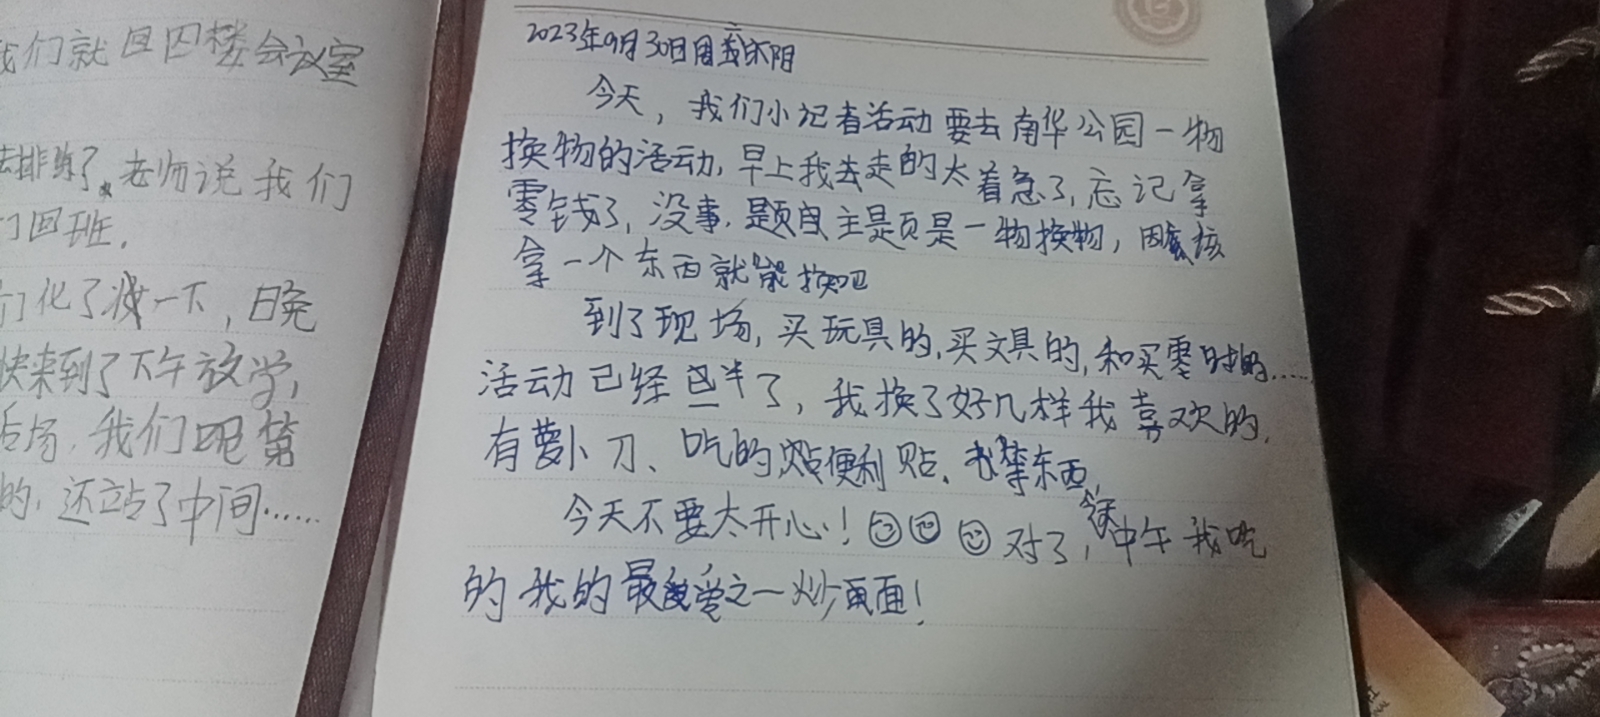 我们就回四楼会议室
去排练了。老师说我们
门回班.
们化了妆一下，晚
快来到了下午放学，
后场，我们吧第
的，还站了中间……
2023年9月30日周六 阴
今天，我们小记者活动要去南华公园一物
换物的活动，早上我去走的太着急了，忘记拿
零钱了，没事，题目主是页是一物换物，应该
拿一个东西就能换吧
到了现场，买玩具的，买文具的，和买零时的……
活动已经过半了，我换了好几样我喜欢的，
有萝卜刀、吃的 便利贴、书等东西，
今天不要太开心！对了，今天中午我吃
的我的最爱之一炒面！